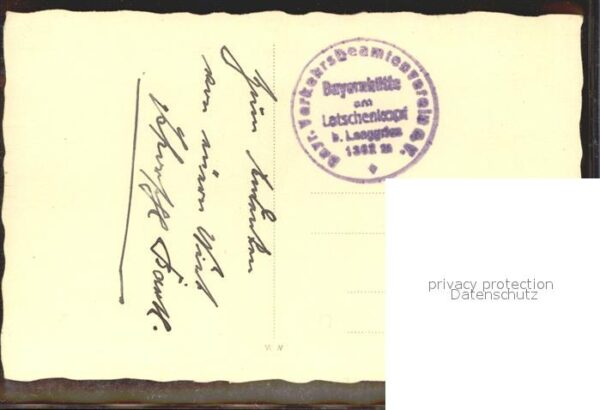 Bayr. Verkehrsbeamtenverein e.V.
Bayernhütte
am
Latschenkopf
b. Lenggries
1362 m
Zum Andenken
von
Wirt
V. N
privacy protection
Datenschutz